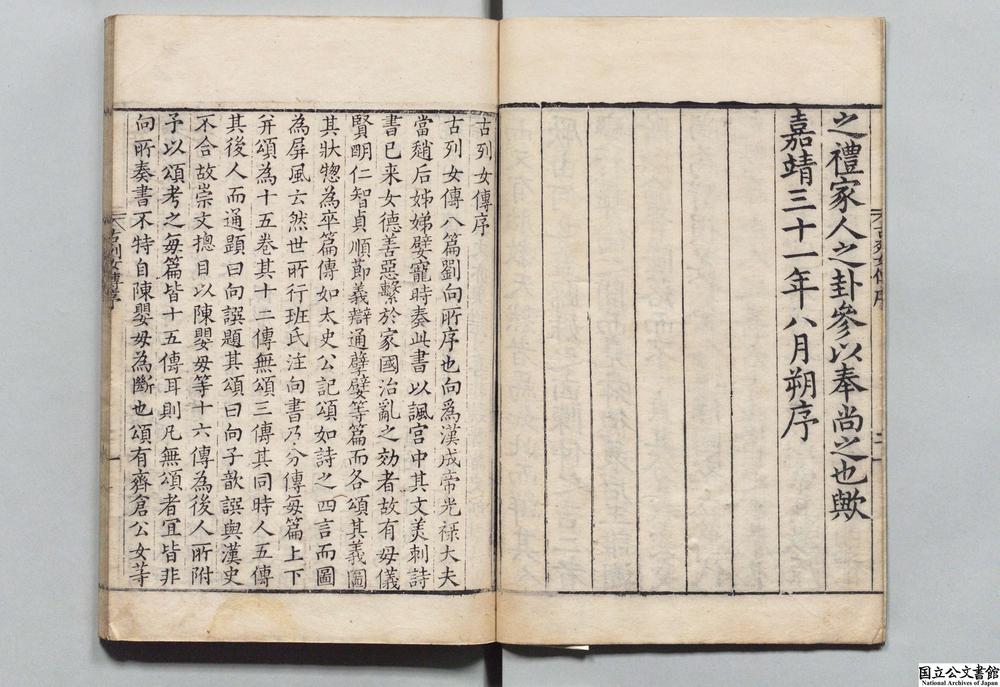 之禮家人之卦參以奉尚之也歟
嘉靖三十一年八月朔序
古列女傳序
古列女傳八篇劉向所序也向爲漢成帝光祿大夫
當趙后姊娣嬖寵時奏此書以諷宫中其文美刺詩
書已來女德善惡繫於家國治亂之効者故有母儀
賢明仁智貞順節義辯通孽嬖等篇而各頌其義圖
其狀惣為卒篇傳如太史公記頌如詩之四言而圖
為屏風云然世所行班氏注向書乃分傳每篇上下
并頌為十五卷其十二傳無頌三傳其同時人五傳
其後人而通題曰向譔題其頌曰向子歆譔與漢史
不合故崇文揔目以陳嬰母等十六傳為後人所附
予以頌考之每篇皆十五傳耳則凡無頌者宜皆非
向所奏書不特自陳嬰母為斷也頌有齊倉公女等
古列女傳序
一
国立公文書館
National Archives of Japan